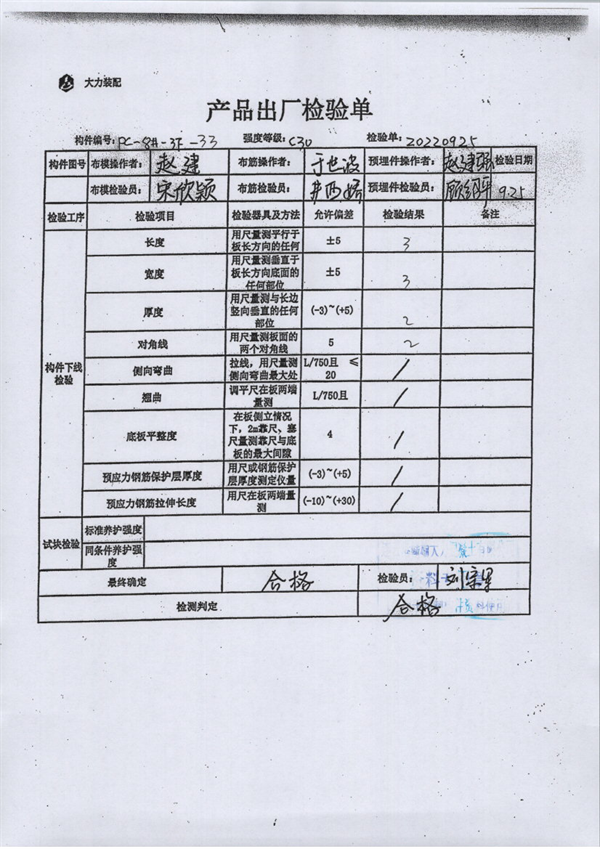 大力装配
产品出厂检验单
构件编号: PC-8#-3F-33 强度等级: C30 检验单: 20220925
构件图号 布模操作者: 赵建 布筋操作者: 于世波 预埋件操作者: 赵建强 检验日期
布模检验员: 宋欣颖 布筋检验员: 预埋件检验员: 9.25
检验工序 检验项目 检验器具及方法 允许偏差 检验结果 备注
构件下线检验
长度 用尺量测平行于板长方向的任何 ±5 3
宽度 用尺量测垂直于板长方向底面的任何部位 ±5 3
厚度 用尺量测与长边竖向垂直的任何部位 (-3)~(+5) 2
对角线 用尺量测板面的两个对角线 5 2
侧向弯曲 拉线，用尺量测侧向弯曲最大处 L/750且 ≤20 /
翘曲 调平尺在板两端量测 L/750且 /
底板平整度 在板侧立情况下，2m靠尺、塞尺量测靠尺与底板的最大间隙 4 /
预应力钢筋保护层厚度 用尺或钢筋保护层厚度测定仪量 (-3)~(+5) /
预应力钢筋拉伸长度 用尺在板两端量测 (-10)~(+30) /
试块检验 标准养护强度
同条件养护强度
最终确定 合格 检验员:
检测判定 合格